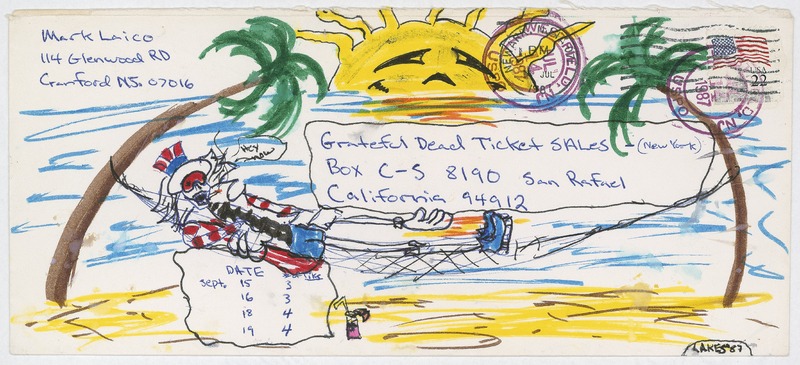 Mark Laico
114 Glenwood RD
Cranford NJ. 07016
HEY NOW
Grateful Dead Ticket SALes - (New York)
Box C-S 8190 San Rafael
California 94912
DATE # of Tiks
Sept. 15 3
16 3
18 4
19 4
USA
22
PM
JUL
1987
USPO
1987
NJ
LAKES '87